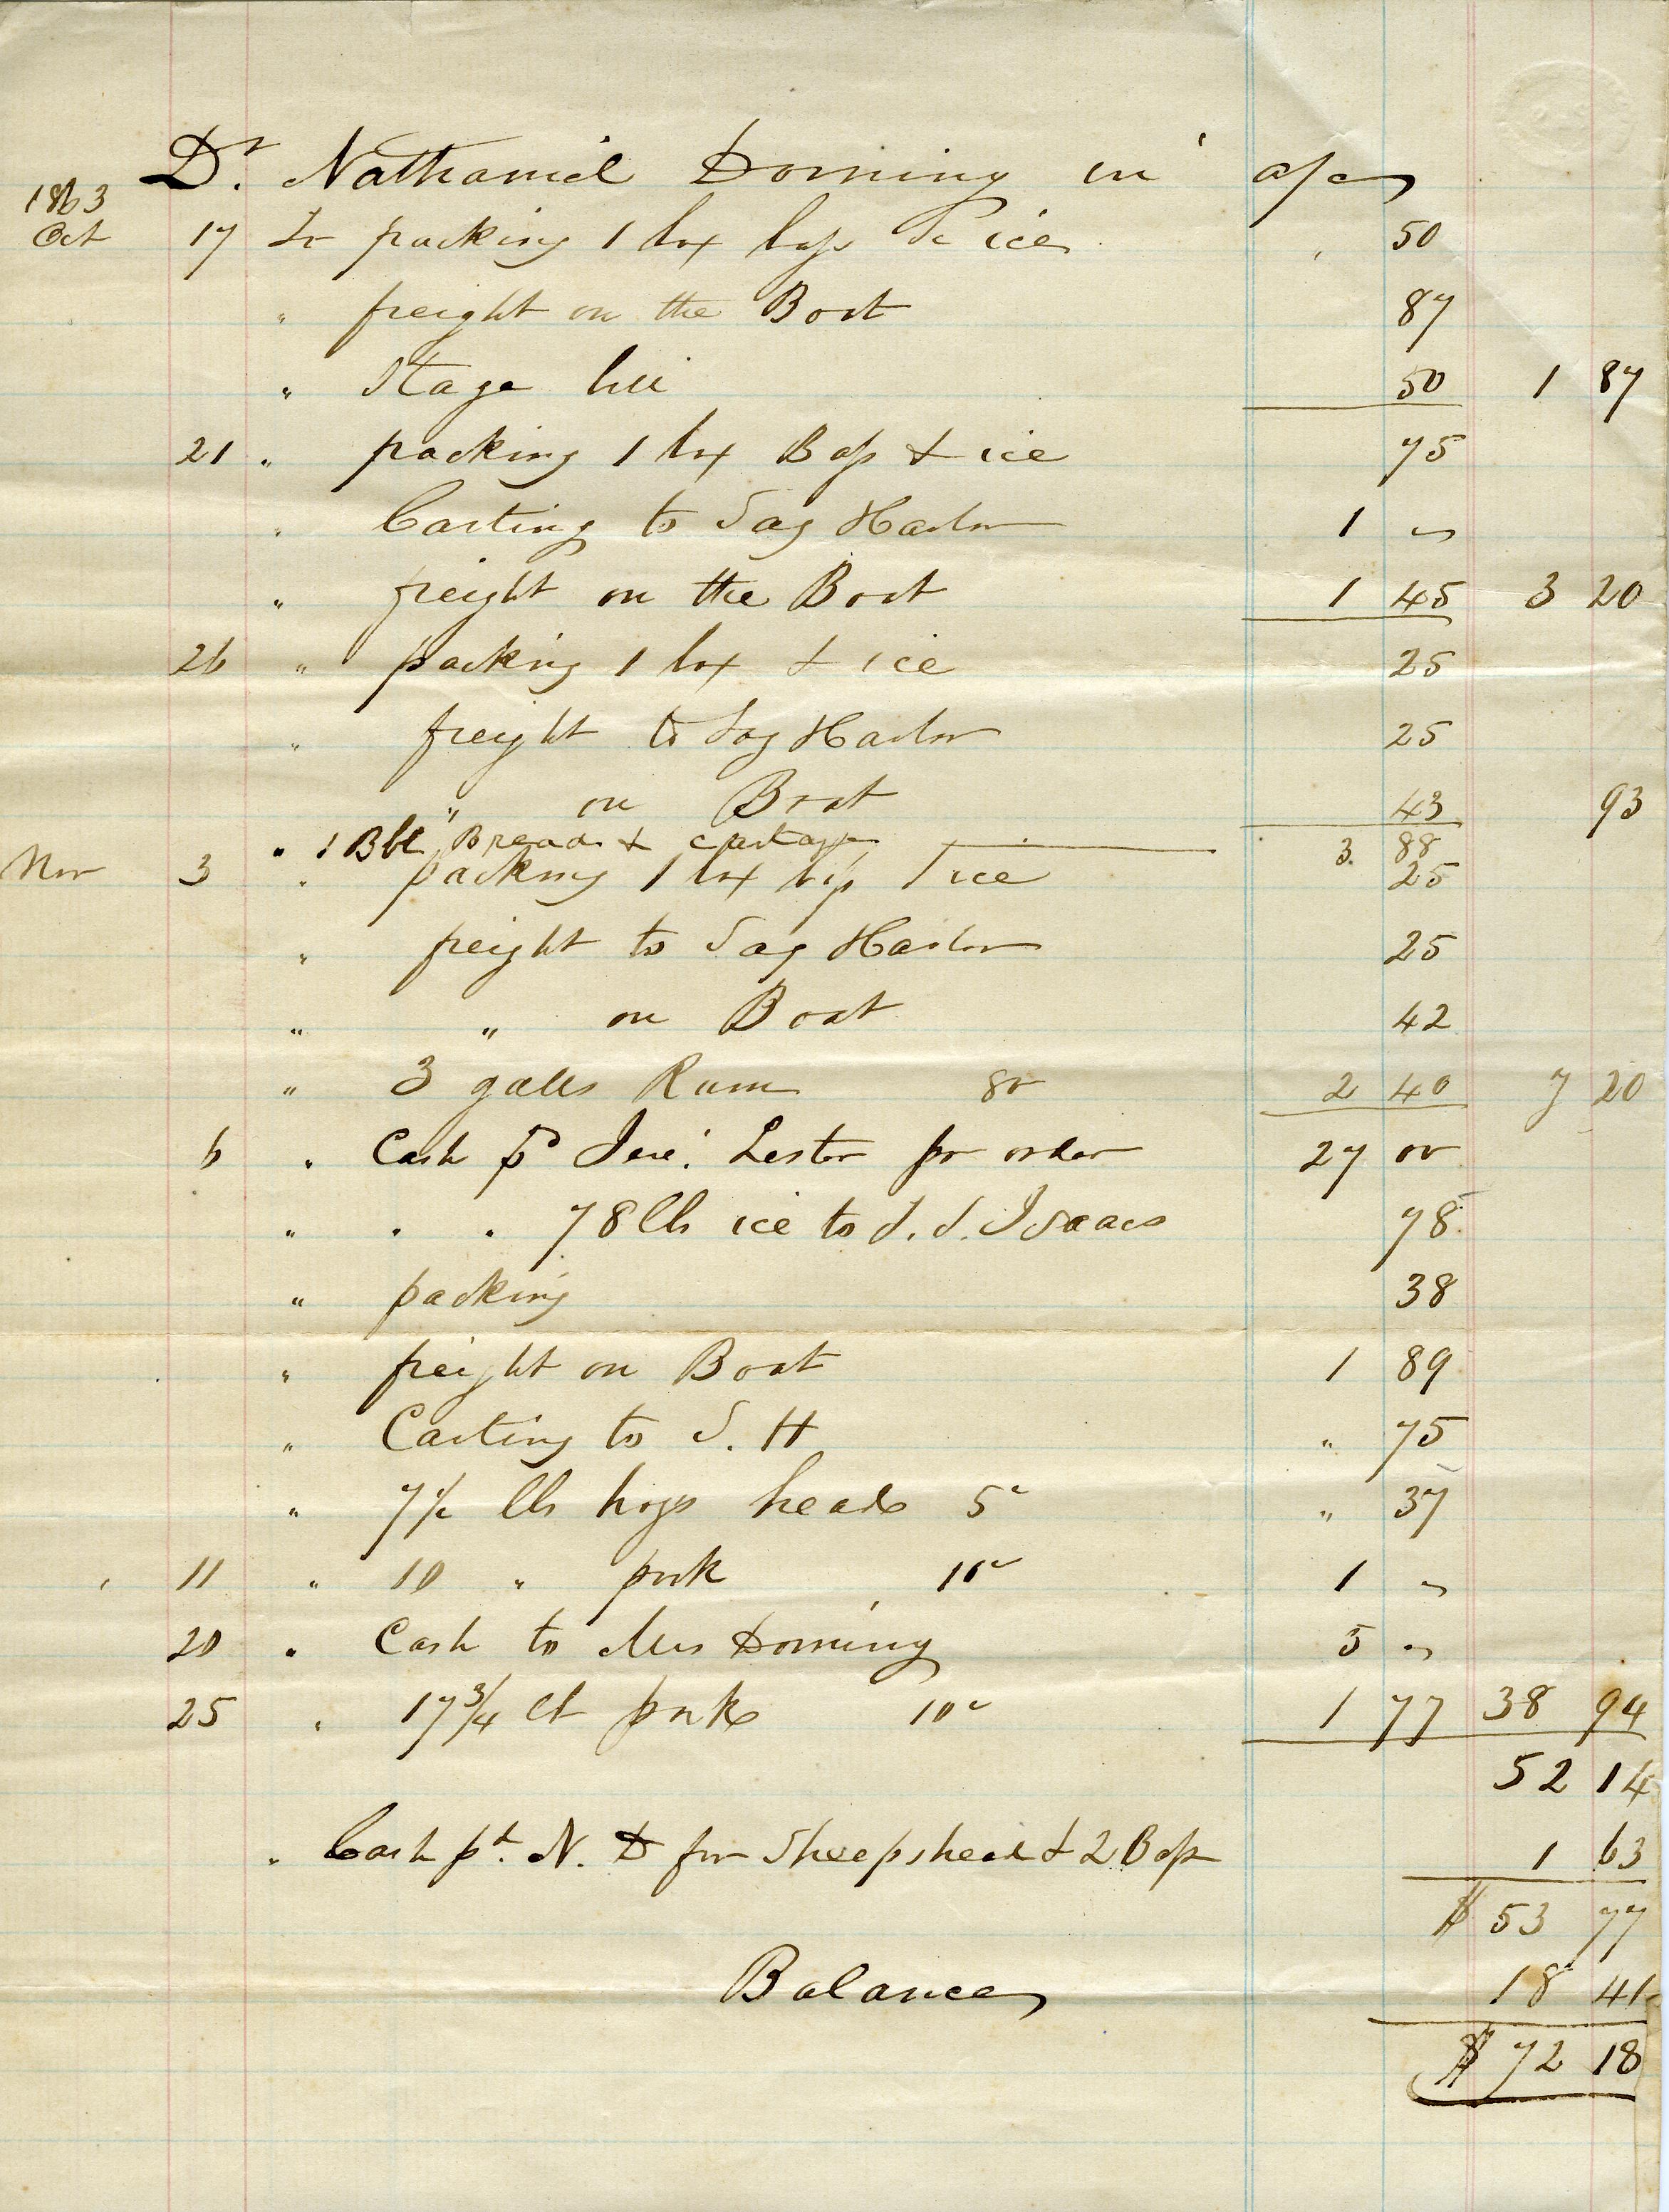 Dr. Nathaniel Dominy in a/c
1863
Oct 17 To packing 1 box bass & ice 50
" freight on the Boat 87
" Stage hire 50 1 87
21 " packing 1 box Bass & ice 75
" Carting to Sag Harbor 1 "
" freight on the Boat 1 45 3 20
26 " packing 1 box & ice 25
" freight to Sag Harbor 25
" on Boat 43 93
" 1 Bbl Bread & cartage 3. 88
Nov 3 " packing 1 box bass & ice 25
" freight to Sag Harbor 25
" " on Boat 42
" 3 galls Rum 80 2 40 7 20
6 " Cash pd Jere. Lester pr order 27 00
" " " 78 lb ice to S. S. Isaacs 78
" packing 38
" freight on Boat 1 89
" Carting to S. H " 75
" 7 1/2 lb hogs head 5c " 37
" 11 " 10 " pork 10c 1 "
20 " Cash to Mrs Dominy 5 "
25 " 17 3/4 lb pork 10c 1 77 38 94
52 14
" Cash pd. N. D for Sheepshead & 2 Bass 1 63
$ 53 77
Balance 18 41
$ 72 18